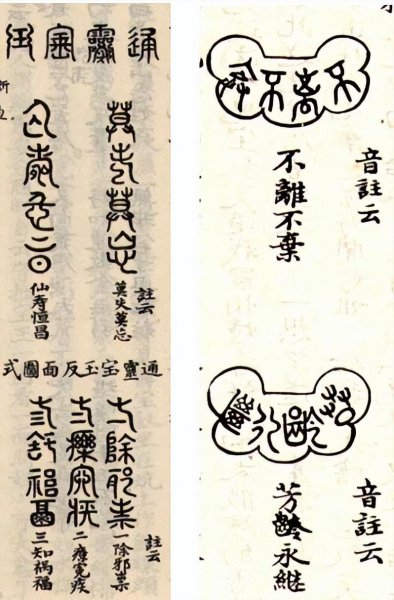 通靈寶玉
莫失莫忘
註云
莫失莫忘
仙壽恒昌
仙寿恒昌
通靈宝玉反面圖式
一除邪祟
註云
一除邪祟
二療冤疾
二療寃疾
三知禍福
三知祸福
不離不棄
音註云
不離不棄
芳齡永繼
音註云
芳齡永继